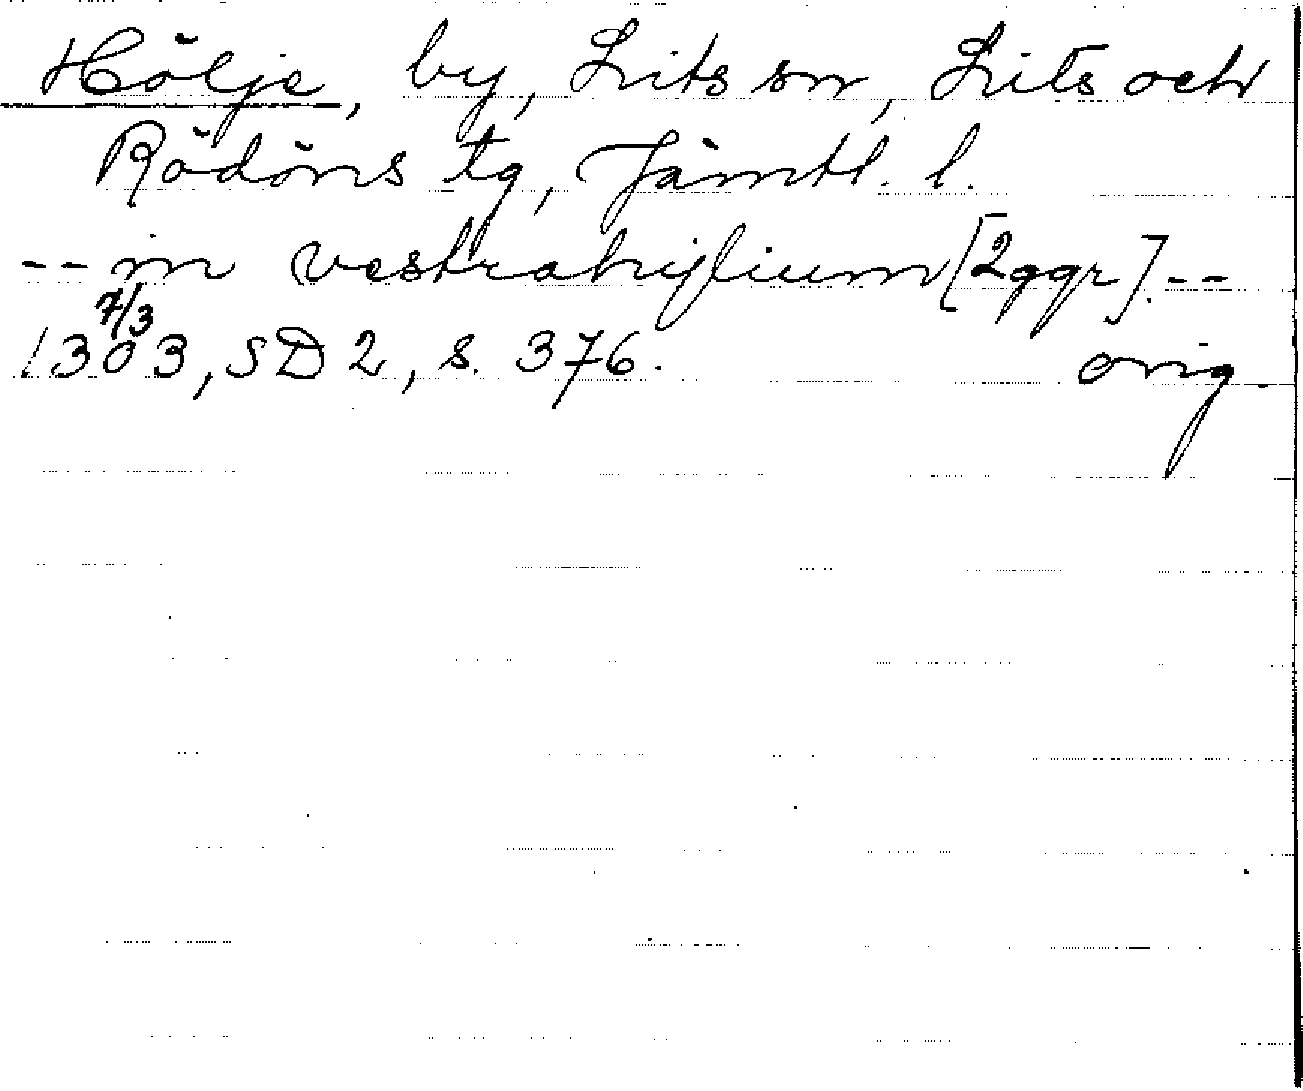 Hölje, by, Lits sn, Lits och
Rödöns tg, Jämtl. l.
-- in vestrahyflium [2ggr] --
7/3
1303, SD 2, s. 376. orig.